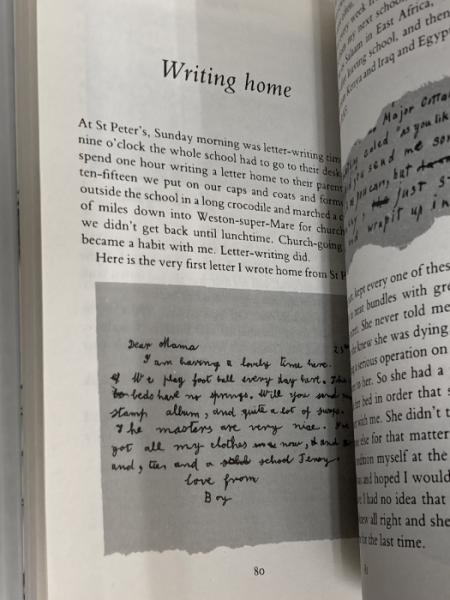 Writing home
At St Peter's, Sunday morning was letter-writing
nine o'clock the whole school had to go to their
spend one hour writing a letter home to their
ten-fifteen we put on our caps and coats and
outside the school in a long crocodile and marched a
of miles down into Weston-super-Mare for
we didn't get back until lunchtime. Church-going
became a habit with me. Letter-writing did.
Here is the very first letter I wrote home from St
Dear Mama
I am having a lovely time here.
We play foot ball every day here.
beds have no springs. Will you
stamp album, and quite a lot of swops.
The masters are very nice.
got all my clothes now,
and, ties and a school Jersy.
love from
Boy
80
my next school
Salaam in East Africa,
school, and then
Kenya and Iraq and Egypt
Major Cotta
caled "as you lik
you send me som
you can, but
just st
wrap it up in
kept every one of these
neat bundles with gre
She never told me
knew she was dying
serious operation on
in her. So she had a
bed in order that s
with me. She didn't t
else for that matter
myself at the
and hoped I would
I had no idea that
all right and she
for the last time.